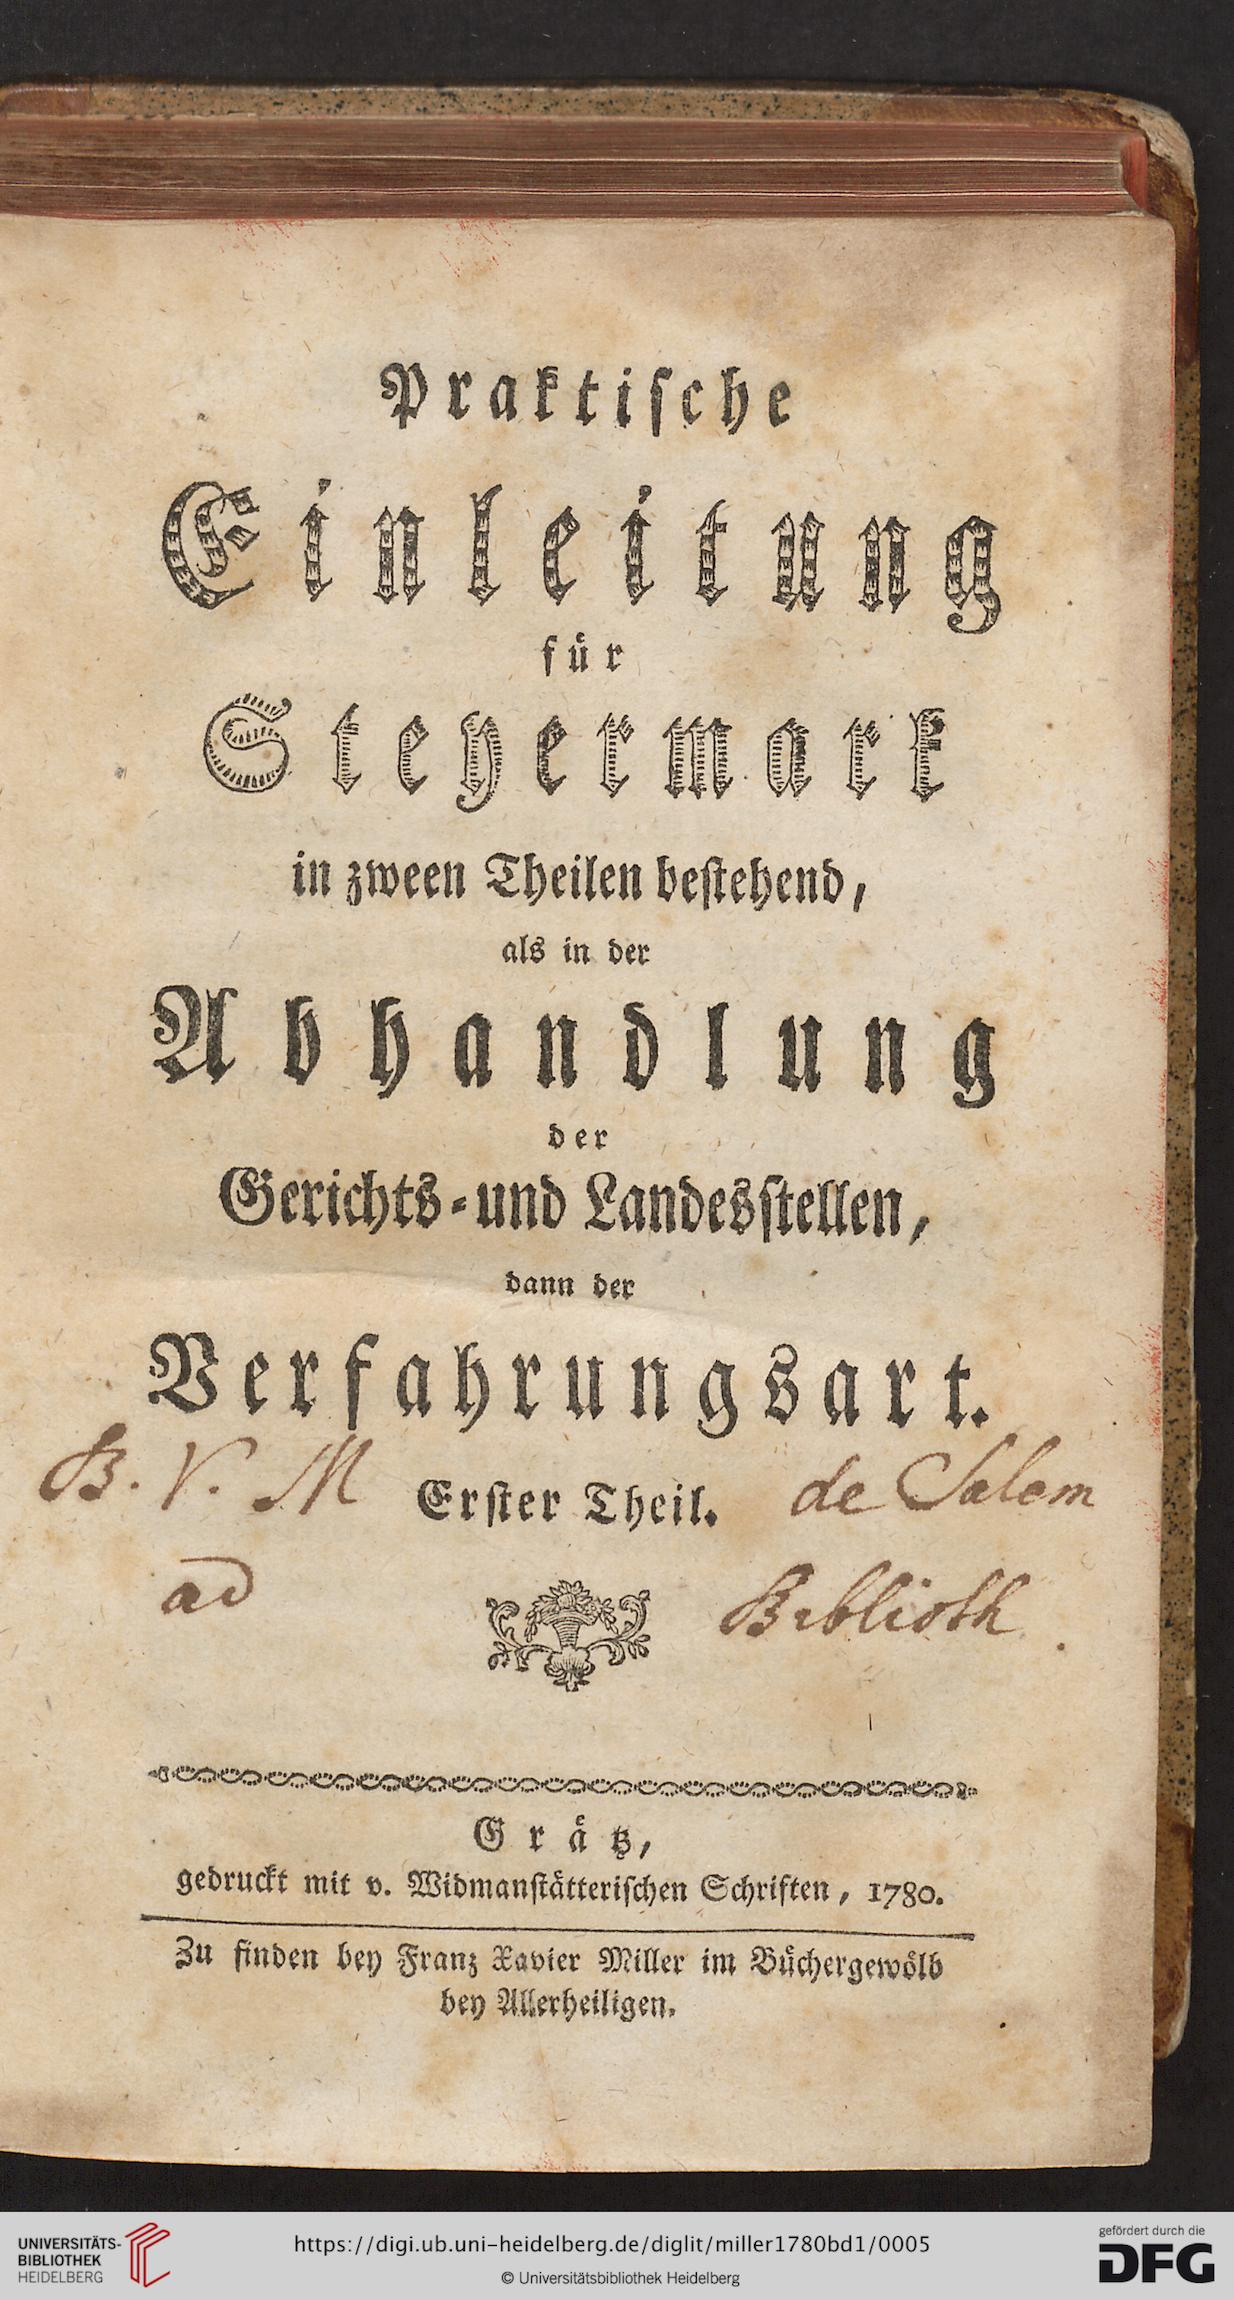 Praktische
Einleitung
für
Steyermark
in zween Theilen bestehend,
als in der
Abhandlung
der
Gerichts- und Landesstellen,
dann der
Verfahrungsart.
B. V. M Erster Theil. de Salem
ad Biblioth.
Grätz,
gedruckt mit v. Widmanstätterischen Schriften, 1780.
Zu finden bey Franz Xavier Miller im Büchergewölb
bey Allerheiligen.
UNIVERSITÄTS-
BIBLIOTHEK
HEIDELBERG
https://digi.ub.uni-heidelberg.de/diglit/miller1780bd1/0005
© Universitätsbibliothek Heidelberg
gefördert durch die
DFG